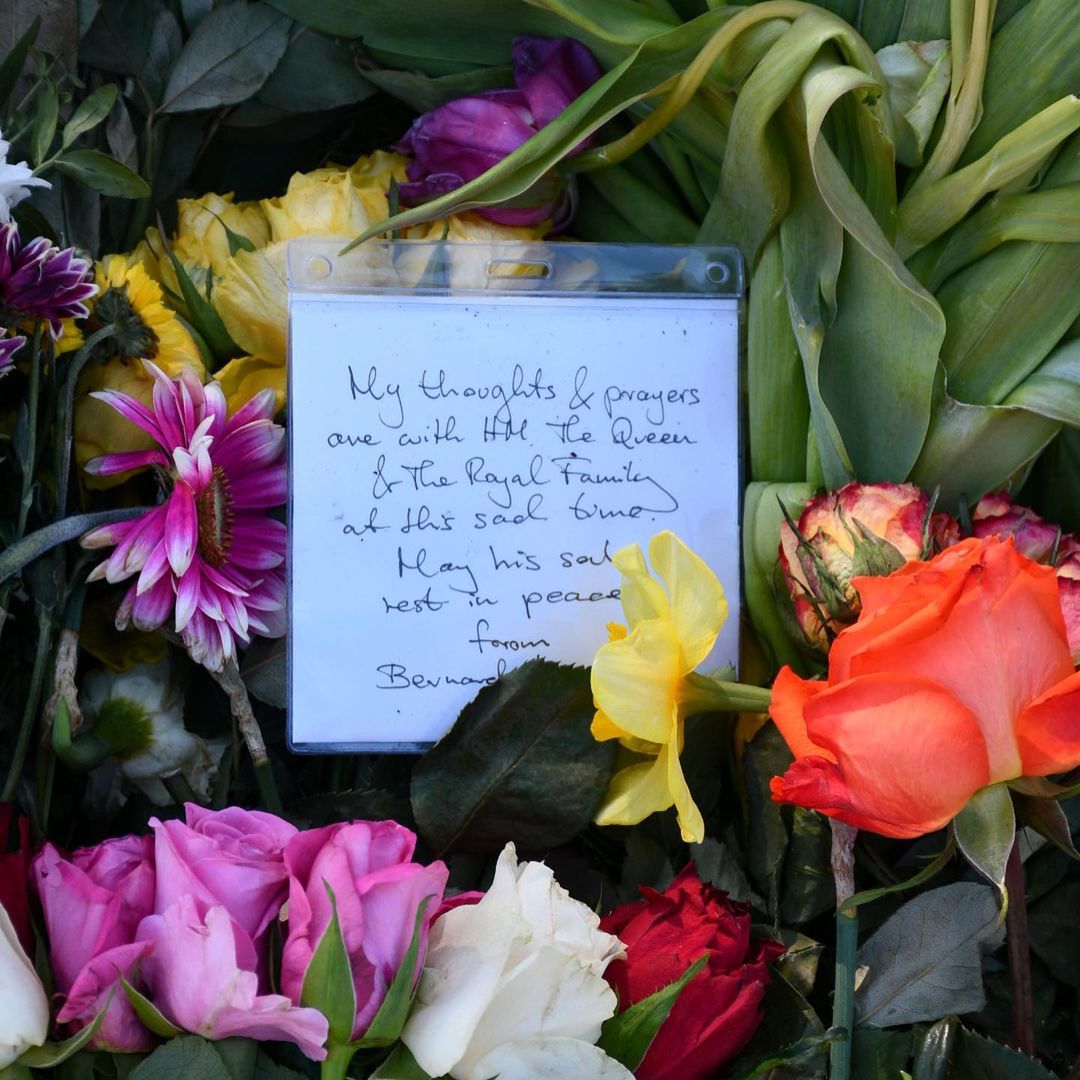 My thoughts & prayers
are with HM. The Queen
& The Royal Family
at this sad time.
May his soul
rest in peace
from
Bernard